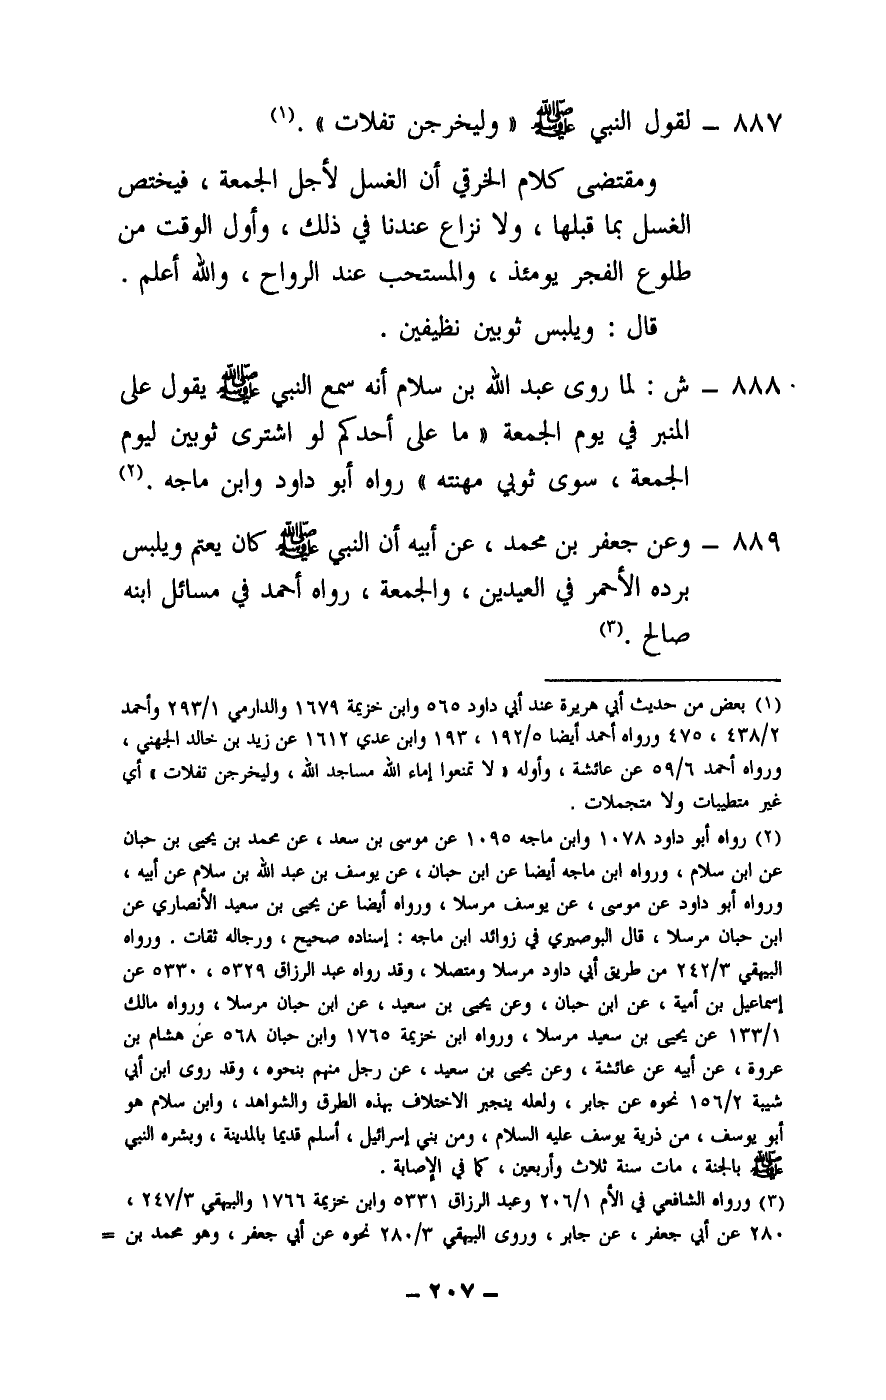 ٨٨٧ – لقول النبي ﷺ « وليخرجن تفلات » .(١)
ومقتضى كلام الخرقي أن الغسل لأجل الجمعة ، فيختص
الغسل بما قبلها ، ولا نزاع عندنا في ذلك ، وأول الوقت من
طلوع الفجر يومئذ ، والمستحب عند الرواح ، والله أعلم .
قال : ويلبس ثوبين نظيفين .
٨٨٨ – ش : لما روى عبد الله بن سلام أنه سمع النبي ﷺ يقول على
المنبر في يوم الجمعة « ما على أحدكم لو اشترى ثوبين ليوم
الجمعة ، سوى ثوبي مهنته » رواه أبو داود وابن ماجه .(٢)
٨٨٩ – وعن جعفر بن محمد ، عن أبيه أن النبي ﷺ كان يعتم ويلبس
برده الأحمر في العيدين ، والجمعة ، رواه أحمد في مسائل ابنه
صالح .(٣)
(١) بعض من حديث أبي هريرة عند أبي داود ٥٦٥ وابن خزيمة ١٦٧٩ والدارمي ٢٩٣/١ وأحمد
٤٣٨/٢ ، ٤٧٥ ورواه أحمد أيضا ١٩٢/٥ ، ١٩٣ وابن عدي ١٦١٢ عن زيد بن خالد الجهني ،
ورواه أحمد ٥٩/٦ عن عائشة ، وأوله « لا تمنعوا إماء الله مساجد الله ، وليخرجن تفلات » أي
غير متطيبات ولا متجملات .
(٢) رواه أبو داود ١٠٧٨ وابن ماجه ١٠٩٥ عن موسى بن سعد ، عن محمد بن يحيى بن حبان
عن ابن سلام ، ورواه ابن ماجه أيضا عن ابن حبان ، عن يوسف بن عبد الله بن سلام عن أبيه ،
ورواه أبو داود عن موسى ، عن يوسف مرسلا ، ورواه أيضا عن يحيى بن سعيد الأنصاري عن
ابن حبان مرسلا ، قال البوصيري في زوائد ابن ماجه : إسناده صحيح ، ورجاله ثقات . ورواه
البيهقي ٢٤٢/٣ من طريق أبي داود مرسلا ومتصلا ، وقد رواه عبد الرزاق ٥٣٢٩ ، ٥٣٣٠ عن
إسماعيل بن أمية ، عن ابن حبان ، وعن يحيى بن سعيد ، عن ابن حبان مرسلا ، ورواه مالك
١٣٣/١ عن يحيى بن سعيد مرسلا ، ورواه ابن خزيمة ١٧٦٥ وابن حبان ٥٦٨ عن هشام بن
عروة ، عن أبيه عن عائشة ، وعن يحيى بن سعيد ، عن رجل منهم بنحوه ، وقد روى ابن أبي
شيبة ١٥٦/٢ نحوه عن جابر ، ولعله ينجبر الاختلاف بهذه الطرق والشواهد ، وابن سلام هو
أبو يوسف ، من ذرية يوسف عليه السلام ، ومن بني إسرائيل ، أسلم قديما بالمدينة ، وبشره النبي
ﷺ بالجنة ، مات سنة ثلاث وأربعين ، كما في الإصابة .
(٣) ورواه الشافعي في الأم ٢٠٦/١ وعبد الرزاق ٥٣٣١ وابن خزيمة ١٧٦٦ والبيهقي ٢٤٧/٣ ،
٢٨٠ عن أبي جعفر ، عن جابر ، وروى البيهقي ٢٨٠/٣ نحوه عن أبي جعفر ، وهو محمد بن =
– ٢٠٧ –